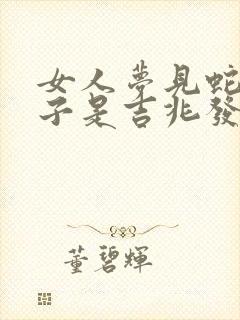 女人夢見蛇
子是吉兆發
董碧輝